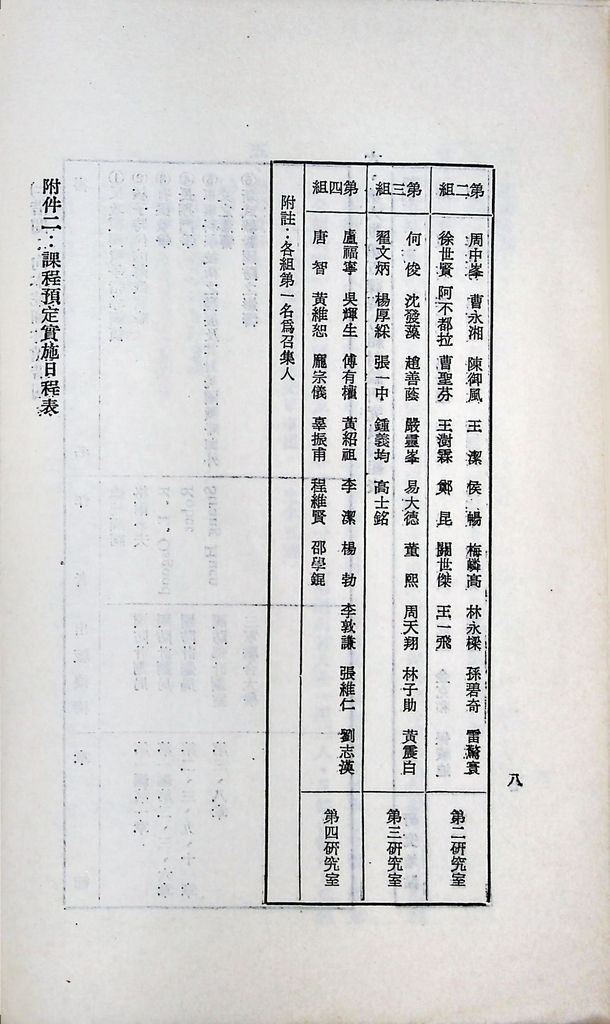 第二組
周中峯 曹永湘 陳御風 王潔 侯暢 梅麟高 林永樑 孫碧奇 雷驚寰
徐世賢 阿不都拉 曹聖芬 王澍霖 鄭昆 關世傑 王一飛
第二研究室
第三組
何俊 沈發藻 趙善蔭 嚴靈峯 易大德 董熙 周天翔 林子助 黃震白
翟文炳 楊厚綵 張一中 鍾義均 高士銘
第三研究室
第四組
盧福寧 吳輝生 傅有權 黃紹祖 李潔 楊勃 李敦謙 張維仁 劉志漢
唐智 黃維恕 龐宗儀 辜振甫 程維賢 邵學錕
第四研究室
附註：各組第一名為召集人
附件二：課程預定實施日程表
八